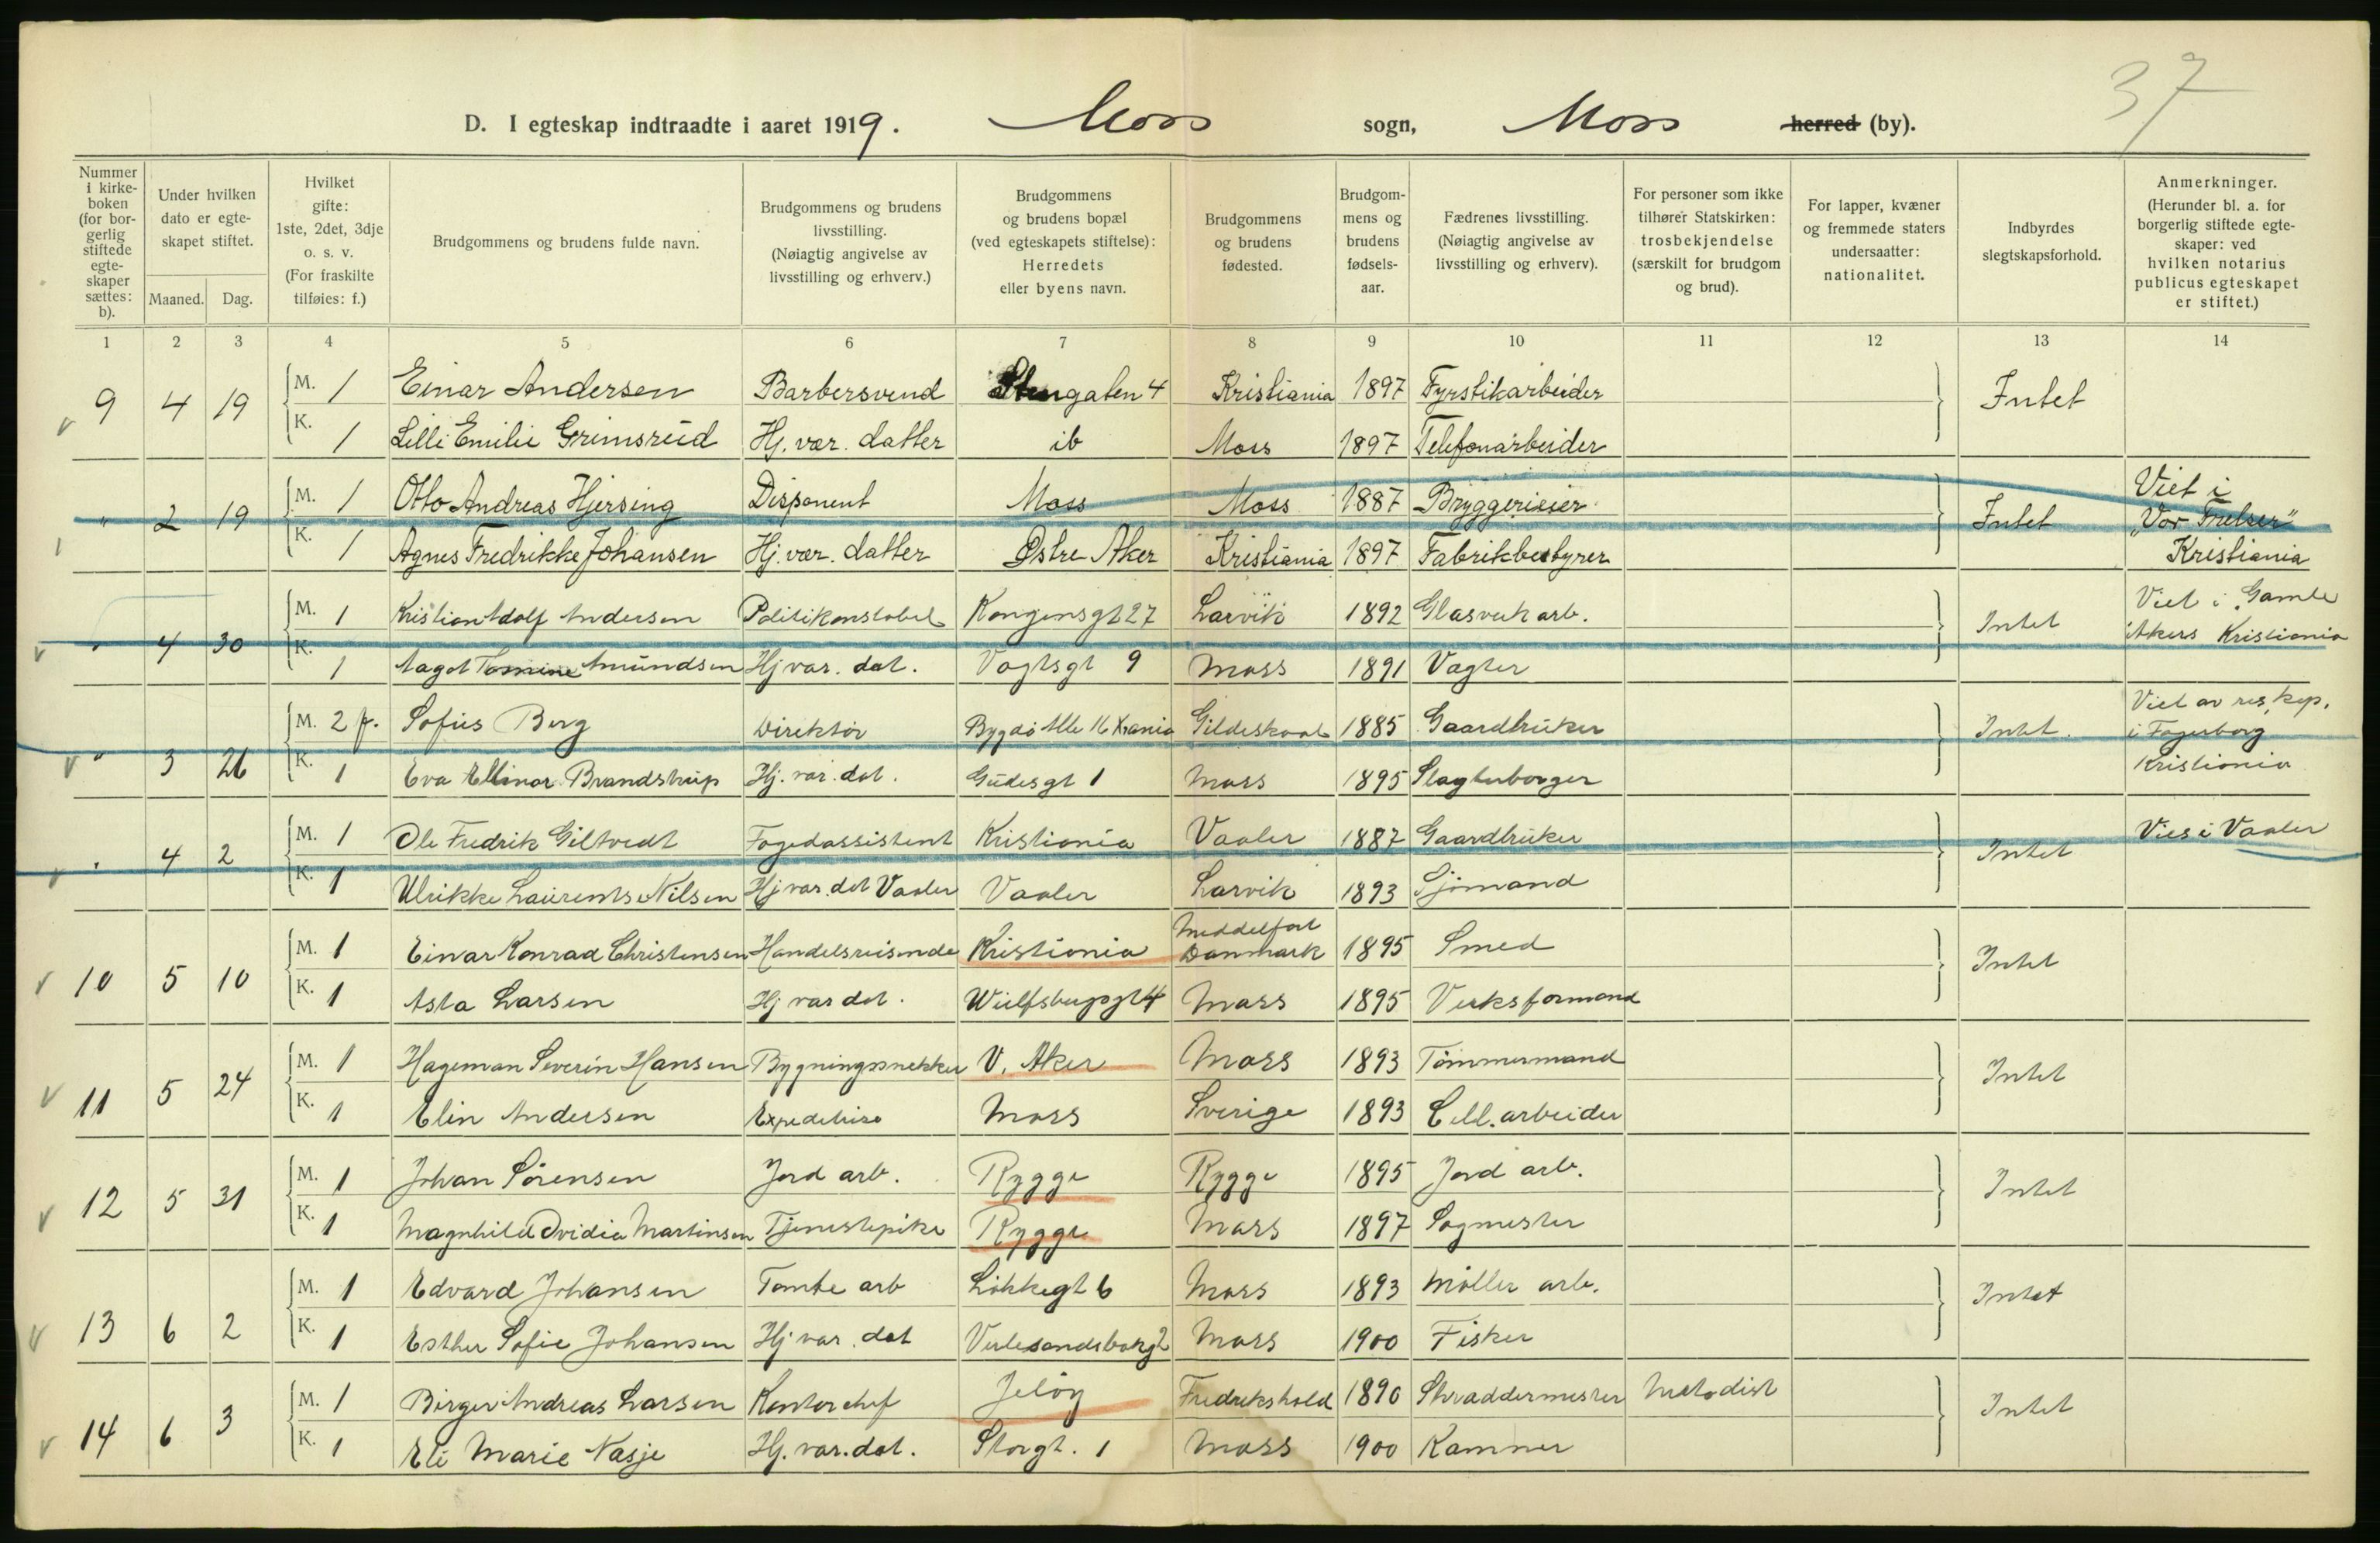 37
D. I egteskap indtraadte i aaret 1919. Moss sogn, Moss herred (by).
Nummer i kirkeboken (for borgerlig stiftede egteskaper sættes: b).
Under hvilken dato er egteskapet stiftet.
Maaned. Dag.
Hvilket gifte: 1ste, 2det, 3dje o. s. v. (For fraskilte tilføies: f.)
Brudgommens og brudens fulde navn.
Brudgommens og brudens livsstilling. (Nøiagtig angivelse av livsstilling og erhverv.)
Brudgommens og brudens bopæl (ved egteskapets stiftelse): Herredets eller byens navn.
Brudgommens og brudens fødested.
Brudgommens og brudens fødselsaar.
Fædrenes livsstilling. (Nøiagtig angivelse av livsstilling og erhverv).
For personer som ikke tilhører Statskirken: trosbekjendelse (særskilt for brudgom og brud).
For lapper, kvæner og fremmede staters undersaatter: nationalitet.
Indbyrdes slegtskapsforhold.
Anmerkninger. (Herunder bl. a. for borgerlig stiftede egteskaper: ved hvilken notarius publicus egteskapet er stiftet.)
1 2 3 4 5 6 7 8 9 10 11 12 13 14
9 4 19 M. 1 Einar Andersen Barbersvend Stengaten 4 Kristiania 1897 Fyrstikarbeider Intet
K. 1 Lilli Emilie Grimsrud Hj. vær. datter ib Moss 1897 Telefonarbeider
" 2 19 M. 1 Otto Andreas Hjersing Disponent Moss Moss 1887 Bryggerieier Intet Viet i "Vor Frelser" Kristiania
K. 1 Agnes Fredrikke Johansen Hj. vær. datter Østre Aker Kristiania 1897 Fabrikbestyrer
" 4 30 M. 1 Kristian Adolf Andersen Politikonstabel Kongensgt 27 Larvik 1892 Glasverk arb. Intet Viet i Gamle Akers Kristiania
K. 1 Aagot Tomine Amundsen Hj vær. dat. Vogtsgt 9 Moss 1891 Vagter
" 3 26 M. 2 f. Sofus Berg Direktør Bygdø Alle 16 Krania Gildeskaal 1885 Gaardbruker Intet. Viet av res. kap. i Fagerborg Kristiania
K. 1 Eva Ellinor Brandstrup Hj. vær. dat. Gudesgt 1 Moss 1895 Slagterborger
" 4 2 M. 1 Ole Fredrik Giltvedt Fogedassistent Kristiania Vaaler 1887 Gaardbruker Intet Vies i Vaaler
K. 1 Ulrikke Laurentse Nilsen Hj vær. dat Vaaler Vaaler Larvik 1893 Sjømand
10 5 10 M. 1 Einar Konrad Christensen Handelsreisende Kristiania Meddelfart Danmark 1895 Smed Intet
K. 1 Asta Larsen Hj vær dat. Wulfsbergsgt 4 Moss 1895 Verksformand
11 5 24 M. 1 Hageman Severin Hansen Bygningssnekker V. Aker Moss 1893 Tømmermand Intet
K. 1 Elin Andersen Expeditrise Moss Sverige 1893 Cell. arbeider
12 5 31 M. 1 Johan Sørensen Jord arb. Rygge Rygge 1895 Jord arb. Intet
K. 1 Magnhild Ovidia Martinsen Tjenestepike Rygge Moss 1897 Sagmester
13 6 2 M. 1 Edvard Johansen Tomte arb Løkkegt 6 Moss 1893 Møller arb. Intet
K. 1 Esther Sofie Johansen Hj vær. dat Moss 1900 Fisker
14 6 3 M. 1 Birger Andreas Larsen Kontorchef Jeløy Fredrikshald 1890 Skræddermester Metodist Intet
K. 1 Eli Marie Nasje Hj. vær. dat. Storgt. 1 Moss 1900 Kæmner